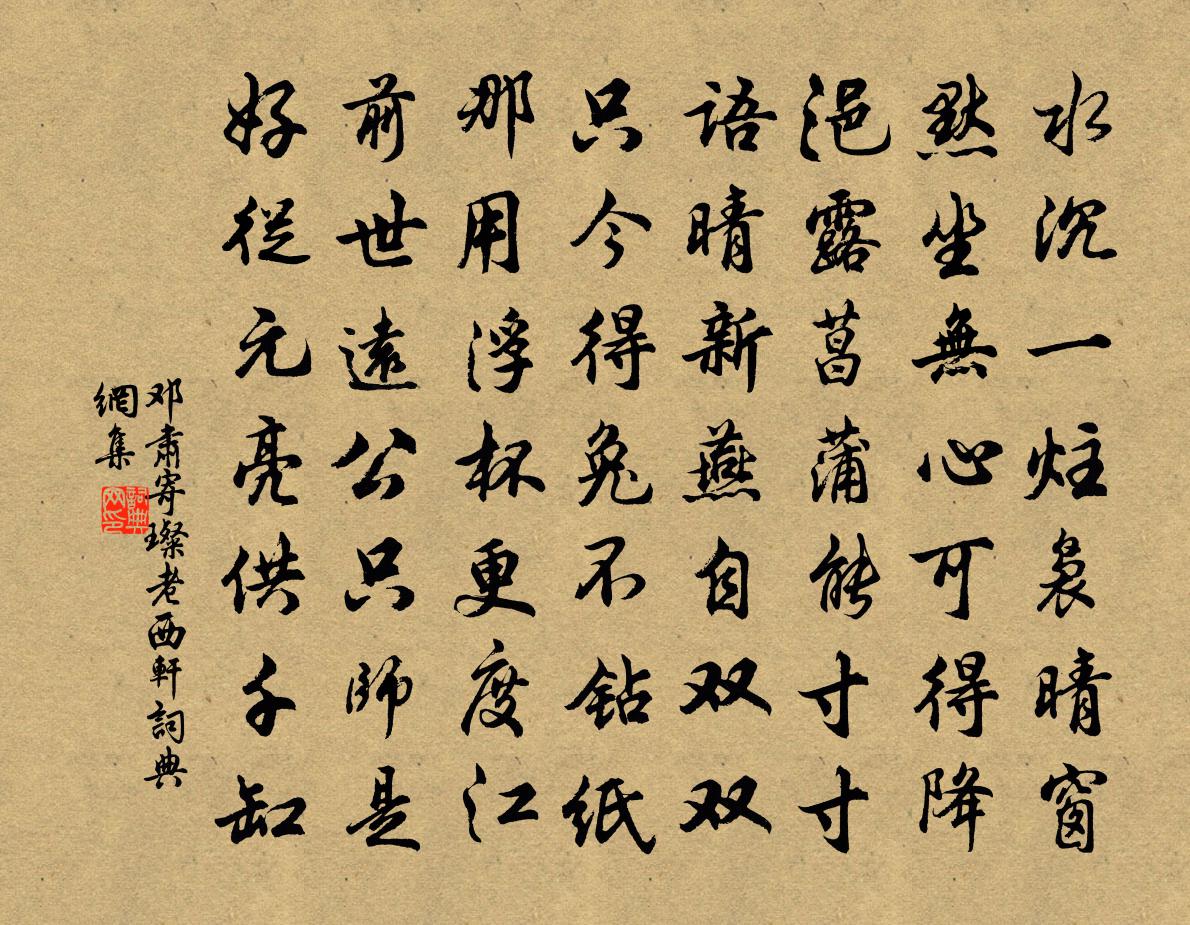 水沉一炷袅晴窗
默坐無心可得降
浥露菖蒲能寸寸
语晴新燕自双双
只今得兔不钻纸
那用浮杯更度江
前世遠公只师是
好從元亮供千缸
邓肃寄璨老西軒詞典
網集
詞典网印